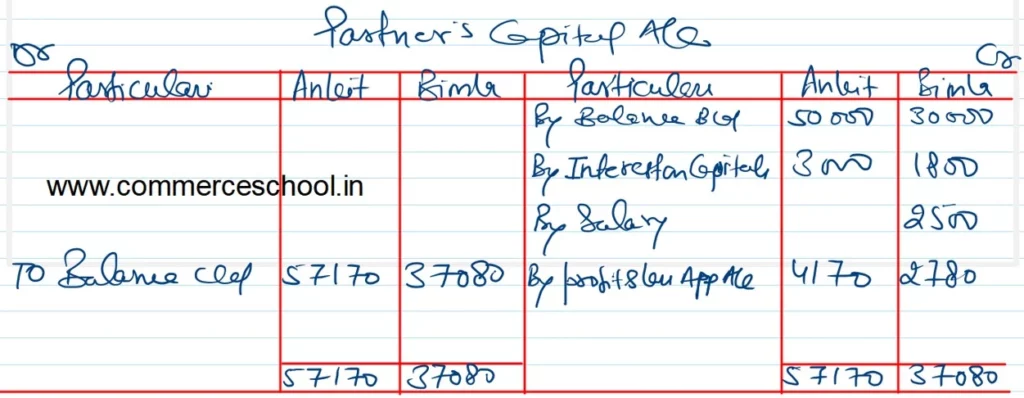 Partner's Capital A/c
Dr Cr
Particulars Ankit Bimla Particulars Ankit Bimla
By Balance B/d 50000 30000
By Interest on Capitals 3000 1800
www.commerceschool.in
By Salary 2500
To Balance c/d 57170 37080 By profit & loss App A/c 4170 2780
57170 37080 57170 37080